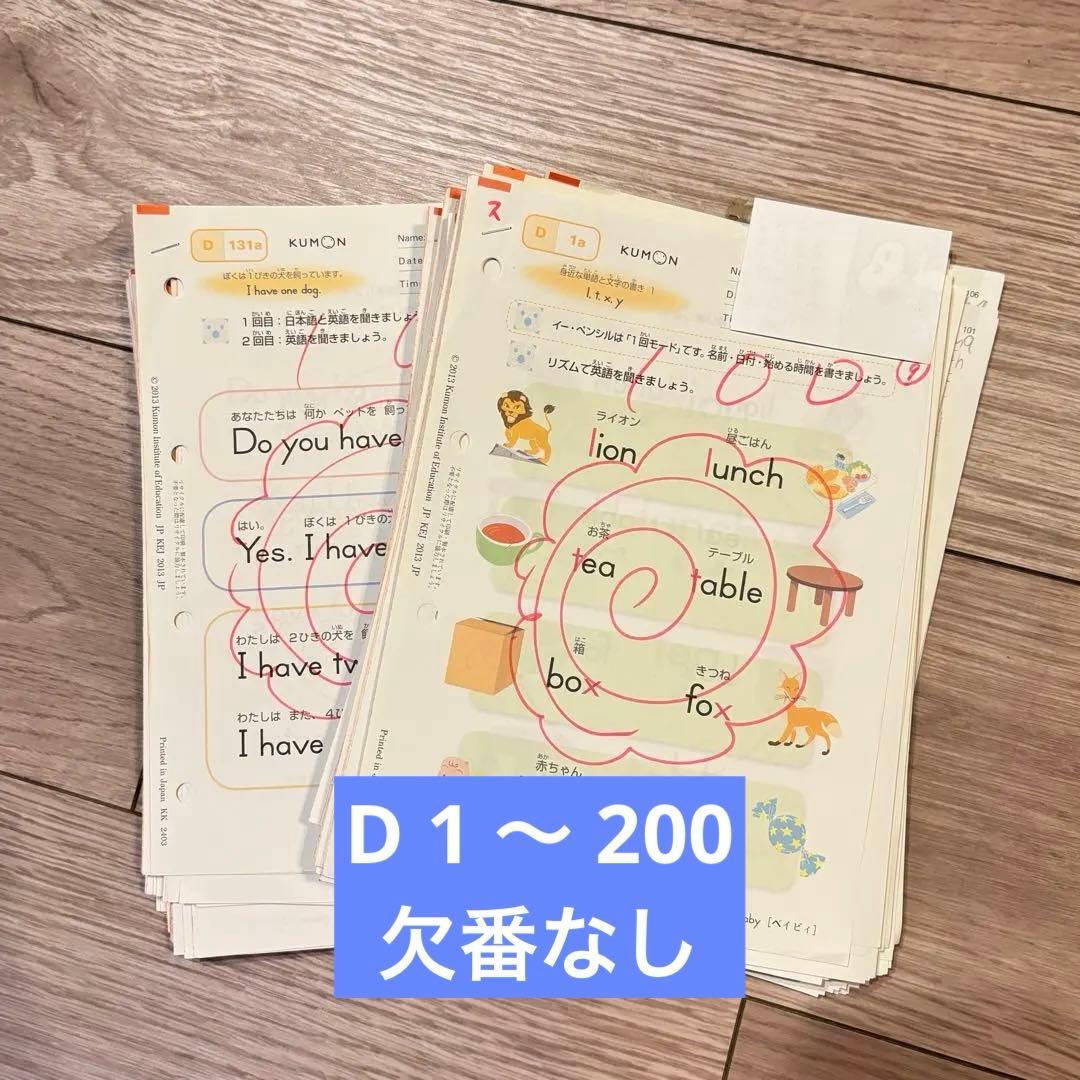 D 131a
KUMON
Name:
Date
Tim
ぼくは1ぴきの犬を飼っています。
I have one dog.
1回目：日本語と英語を聞きましょう
2回目：英語を聞きましょう。
100
あなたたちは 何か ペットを 飼っ
Do you have
はい。 ぼくは 1ぴきの
Yes. I have
わたしは 2ひきの犬を
I have tw
わたしは また、4ひ
I have
© 2013 Kumon Institute of Education JP KEJ 2013 JP
Printed in Japan KK 2403
ス
D 1a
KUMON
身近な単語と文字の書き 1
l, t, x, y
イー・ペンシルは「1回モード」です。名前・日付・始める時間を書きましょう。
リズムで英語を聞きましょう。
100
ライオン
lion
昼ごはん
lunch
お茶
tea
テーブル
table
箱
box
きつね
fox
赤ちゃん
aby [ベイビィ]
© 2013 Kumon Institute of Education JP KEJ 2013 JP
Printed in
106
101
D 1 〜 200
欠番なし